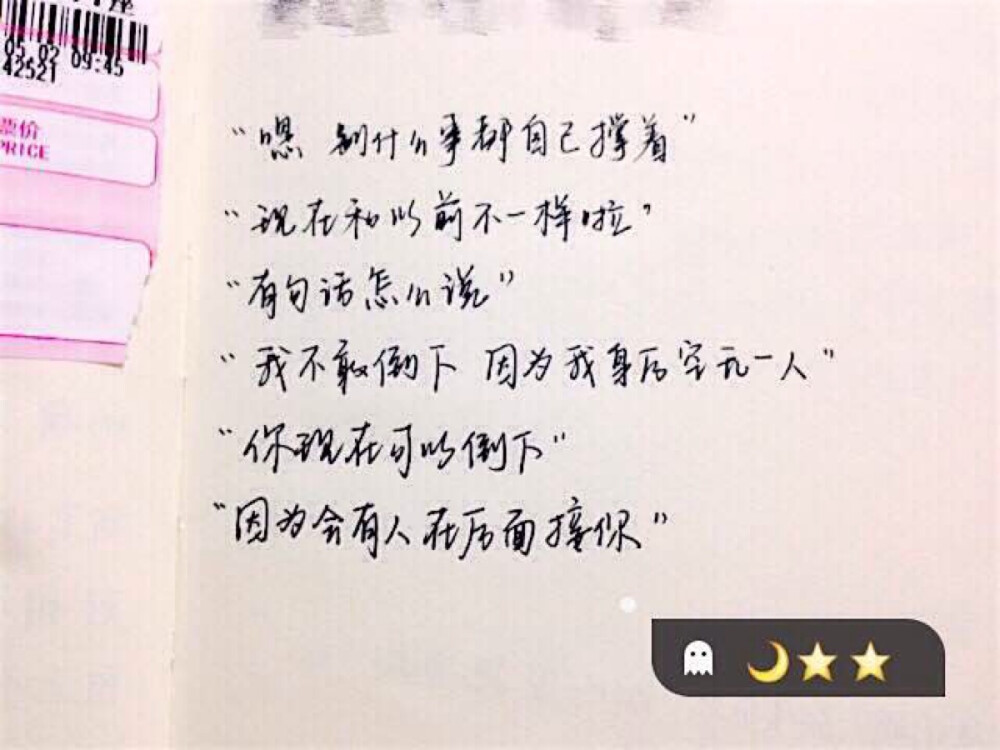 05.02 09:45
42521
票价
PRICE
“嗯 别什么事都自己撑着”
“现在和以前不一样啦”
“有句话怎么说”
“我不敢倒下 因为我身后空无一人”
“你现在可以倒下”
“因为会有人在后面接你”